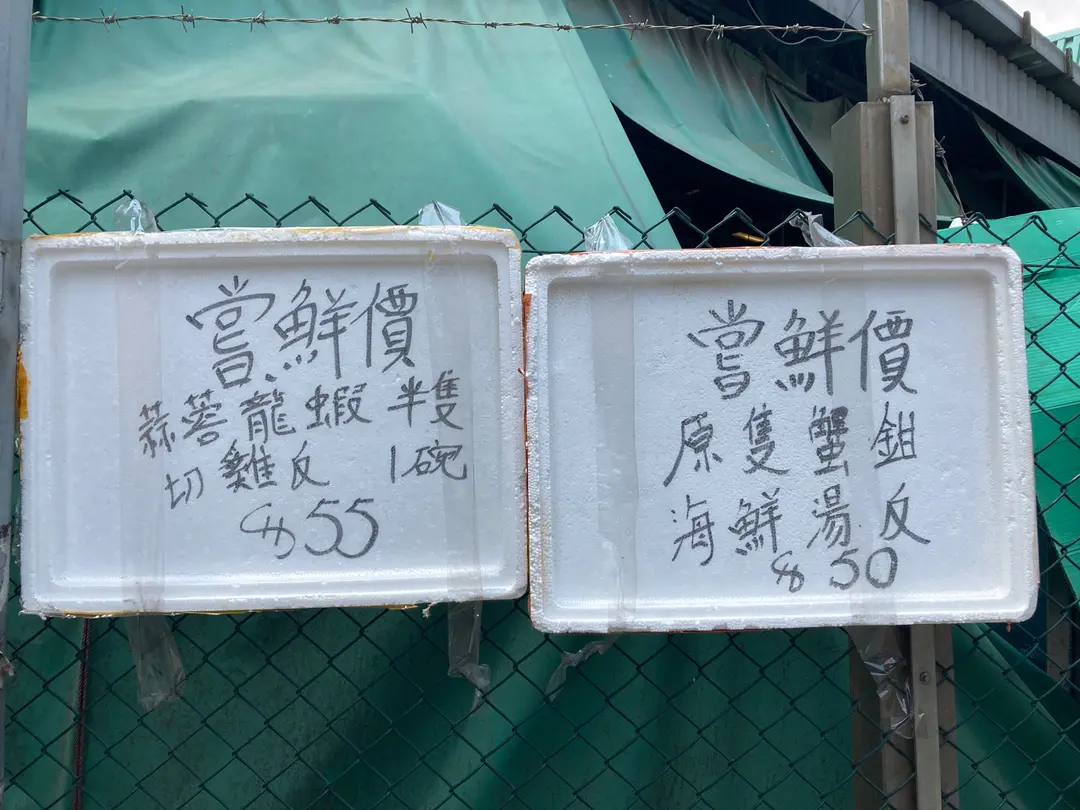 嘗鮮價
蒜蓉龍蝦半隻
切雞反 1碗
$55
嘗鮮價
原隻蟹鉗
海鮮湯反
$50